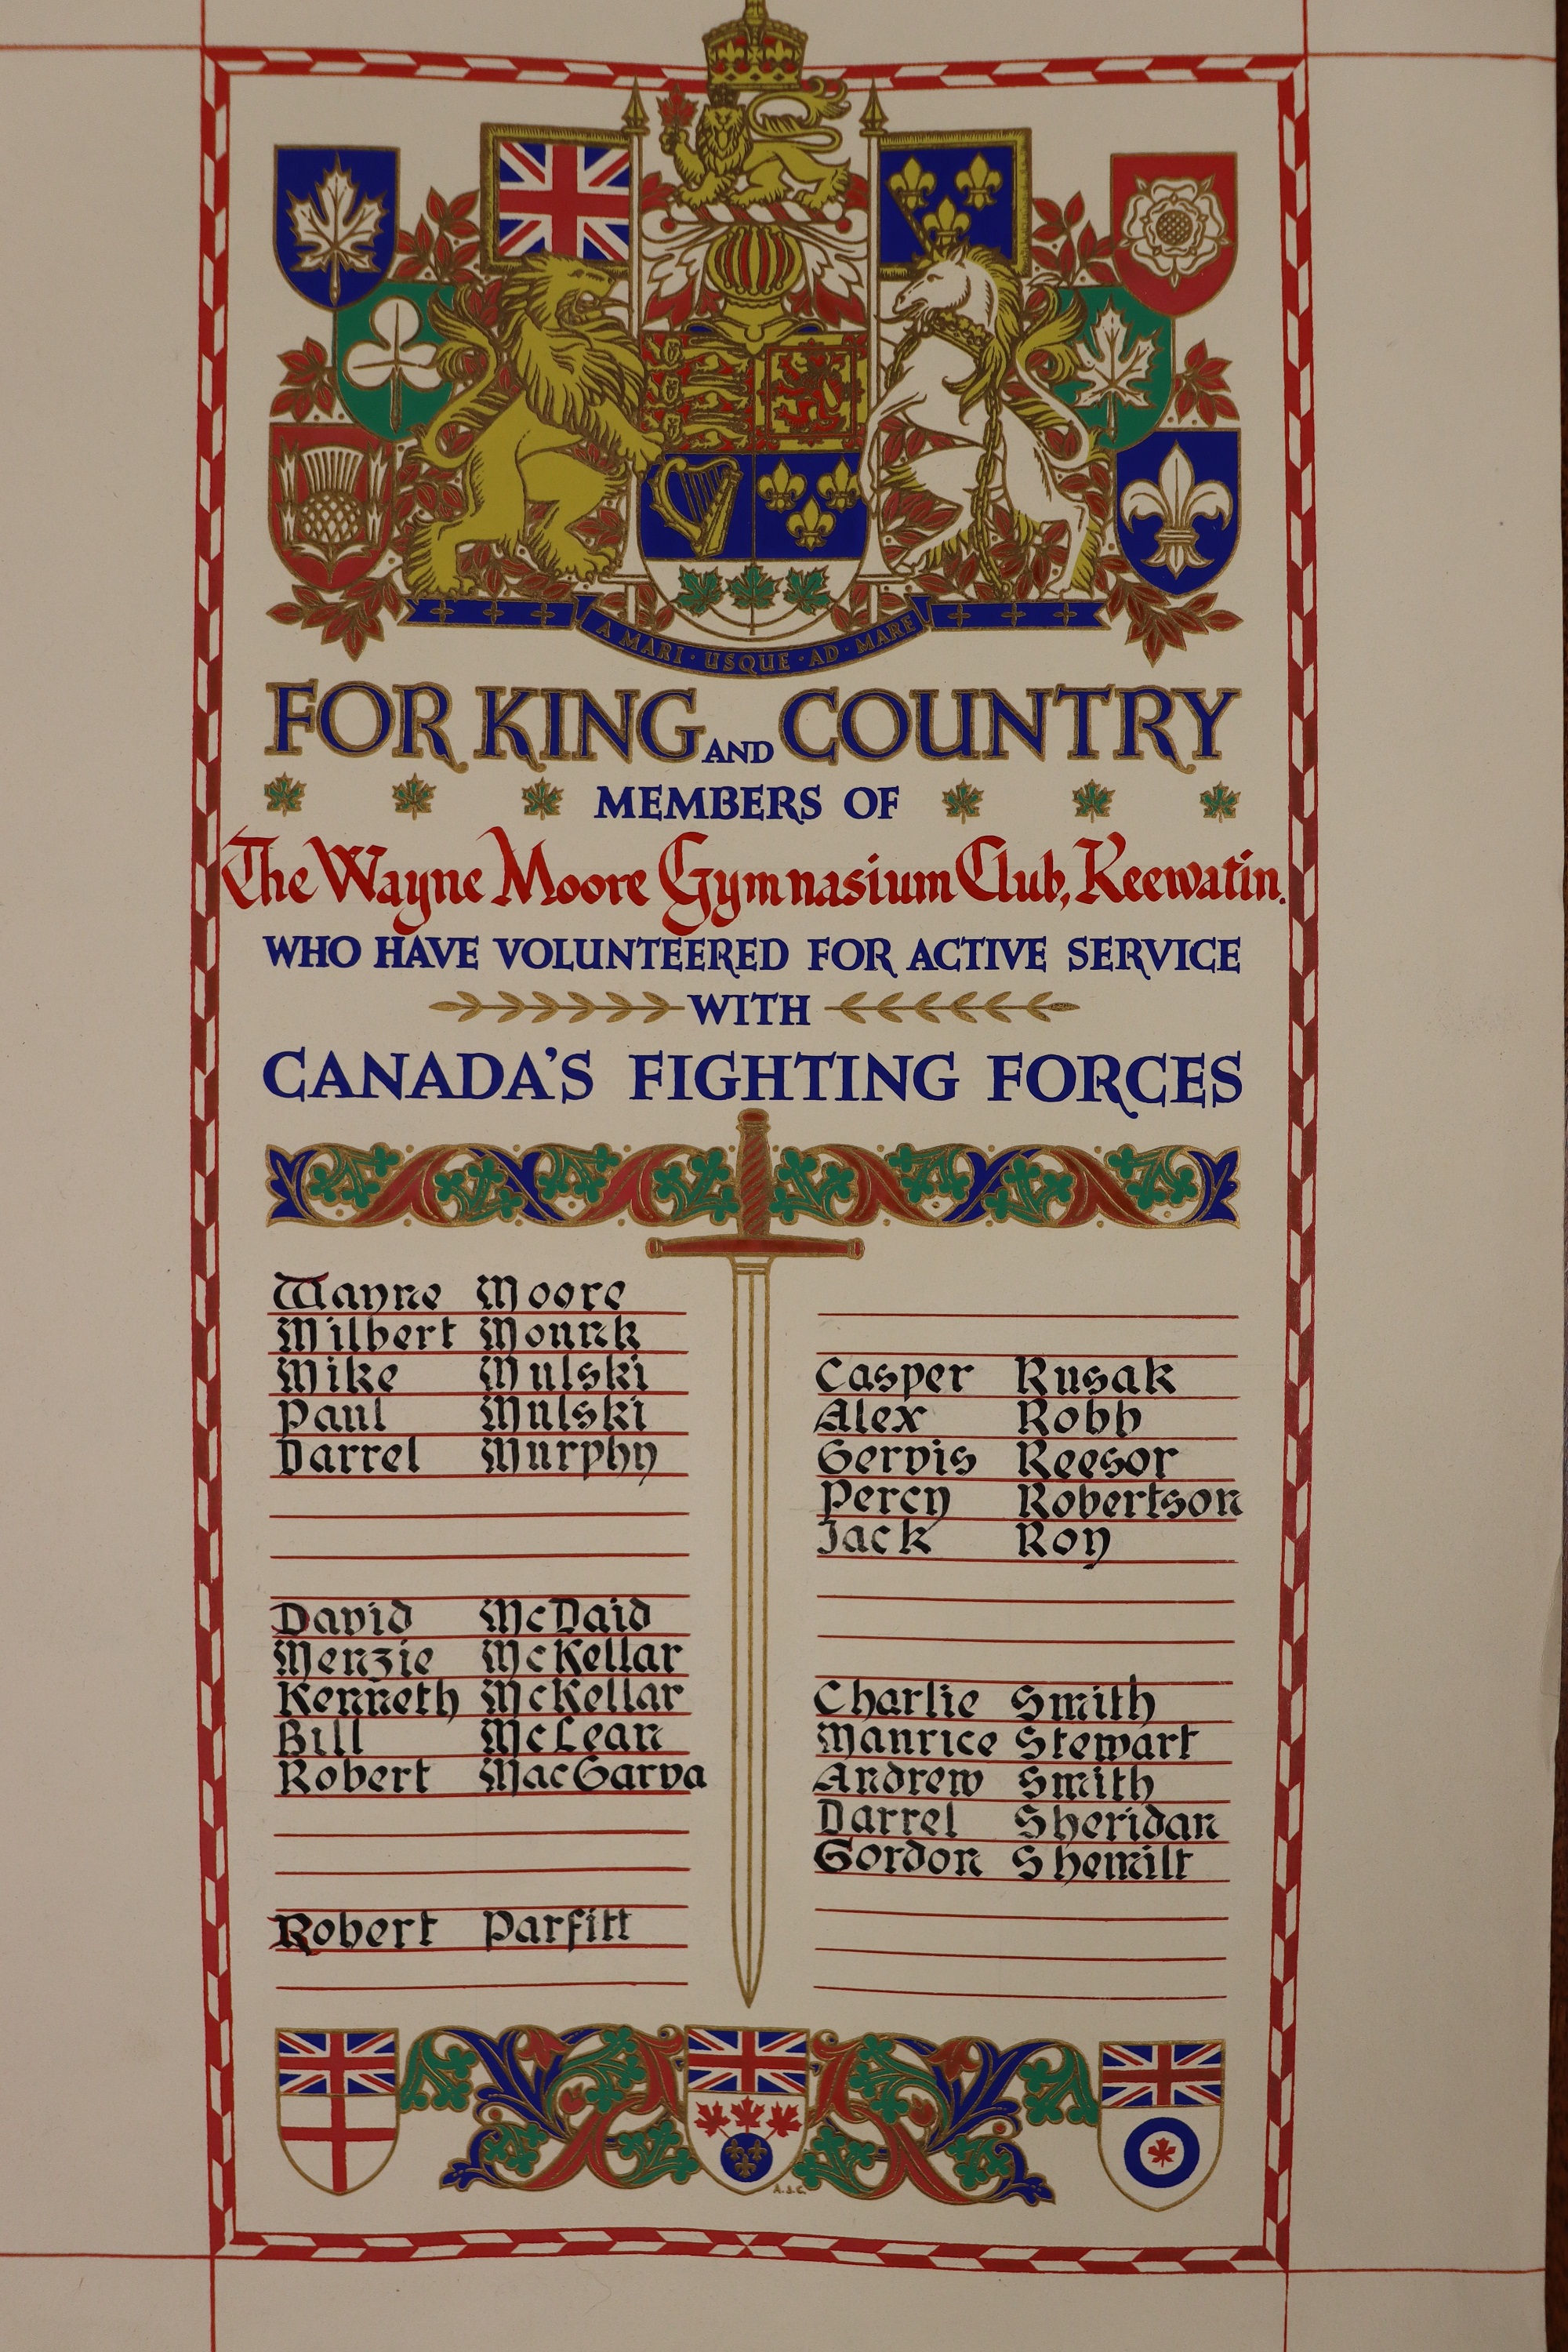 A MARI · USQUE · AD · MARE
FOR KING AND COUNTRY
MEMBERS OF
The Wayne Moore Gymnasium Club, Keewatin.
WHO HAVE VOLUNTEERED FOR ACTIVE SERVICE
WITH
CANADA'S FIGHTING FORCES
Wayne Moore
Milbert Mourk
Mike Mulski
Paul Mulski
Darrel Murphy
David McDaid
Menzie McKellar
Kenneth McKellar
Bill McLean
Robert MacGarva
Robert Parfitt
Casper Rusak
Alex Robb
Gervis Reesor
Percy Robertson
Jack Roy
Charlie Smith
Maurice Stewart
Andrew Smith
Darrel Sheridan
Gordon Shemilt
A.J.C.